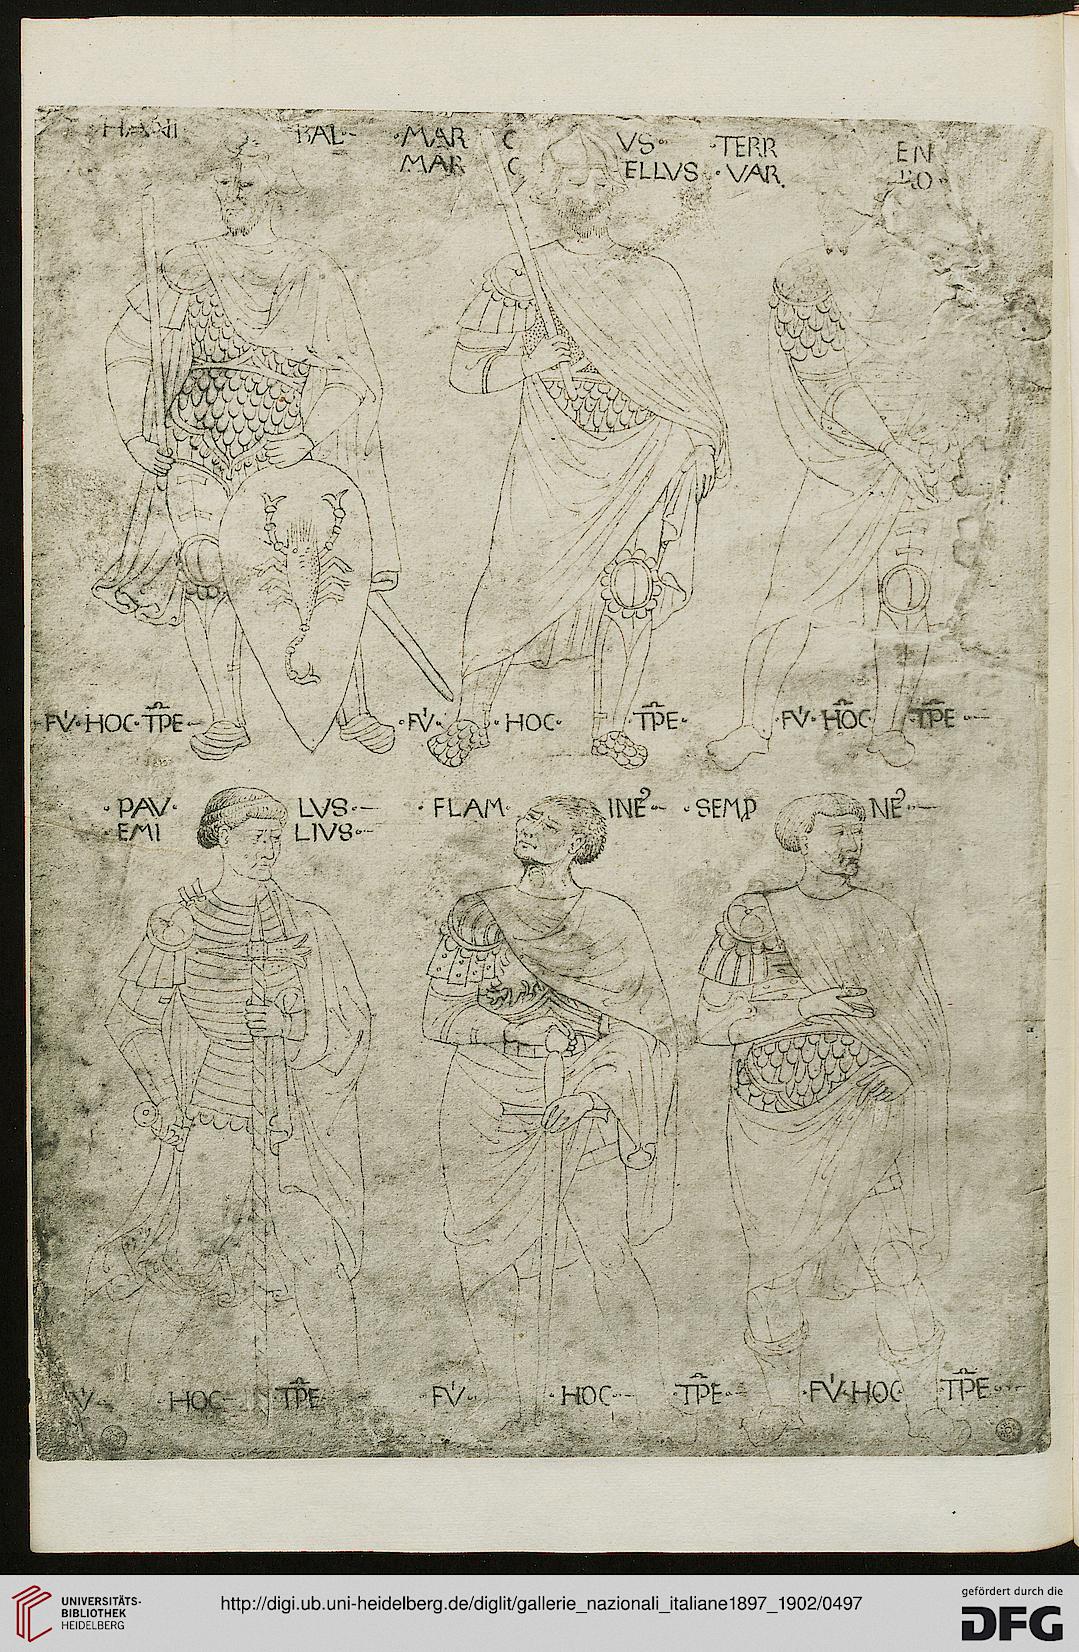 HANI BAL·
·MAR C VS· ·TERR EN
MAR C ELLVS ·VAR. RO·
FV·HOC·TPE· ·FV· ·HOC· ·TPE· ·FV·HOC TPE·
·PAV· LVS· ·FLAM· INE⁹· ·SEMP NE⁹·
·EMI LIVS·
V· ·HOC· TPE· FV· ·HOC· ·TPE· ·FV·HOC TPE·
UNIVERSITÄTS-
BIBLIOTHEK
HEIDELBERG
http://digi.ub.uni-heidelberg.de/diglit/gallerie_nazionali_italiane1897_1902/0497
gefördert durch die
DFG